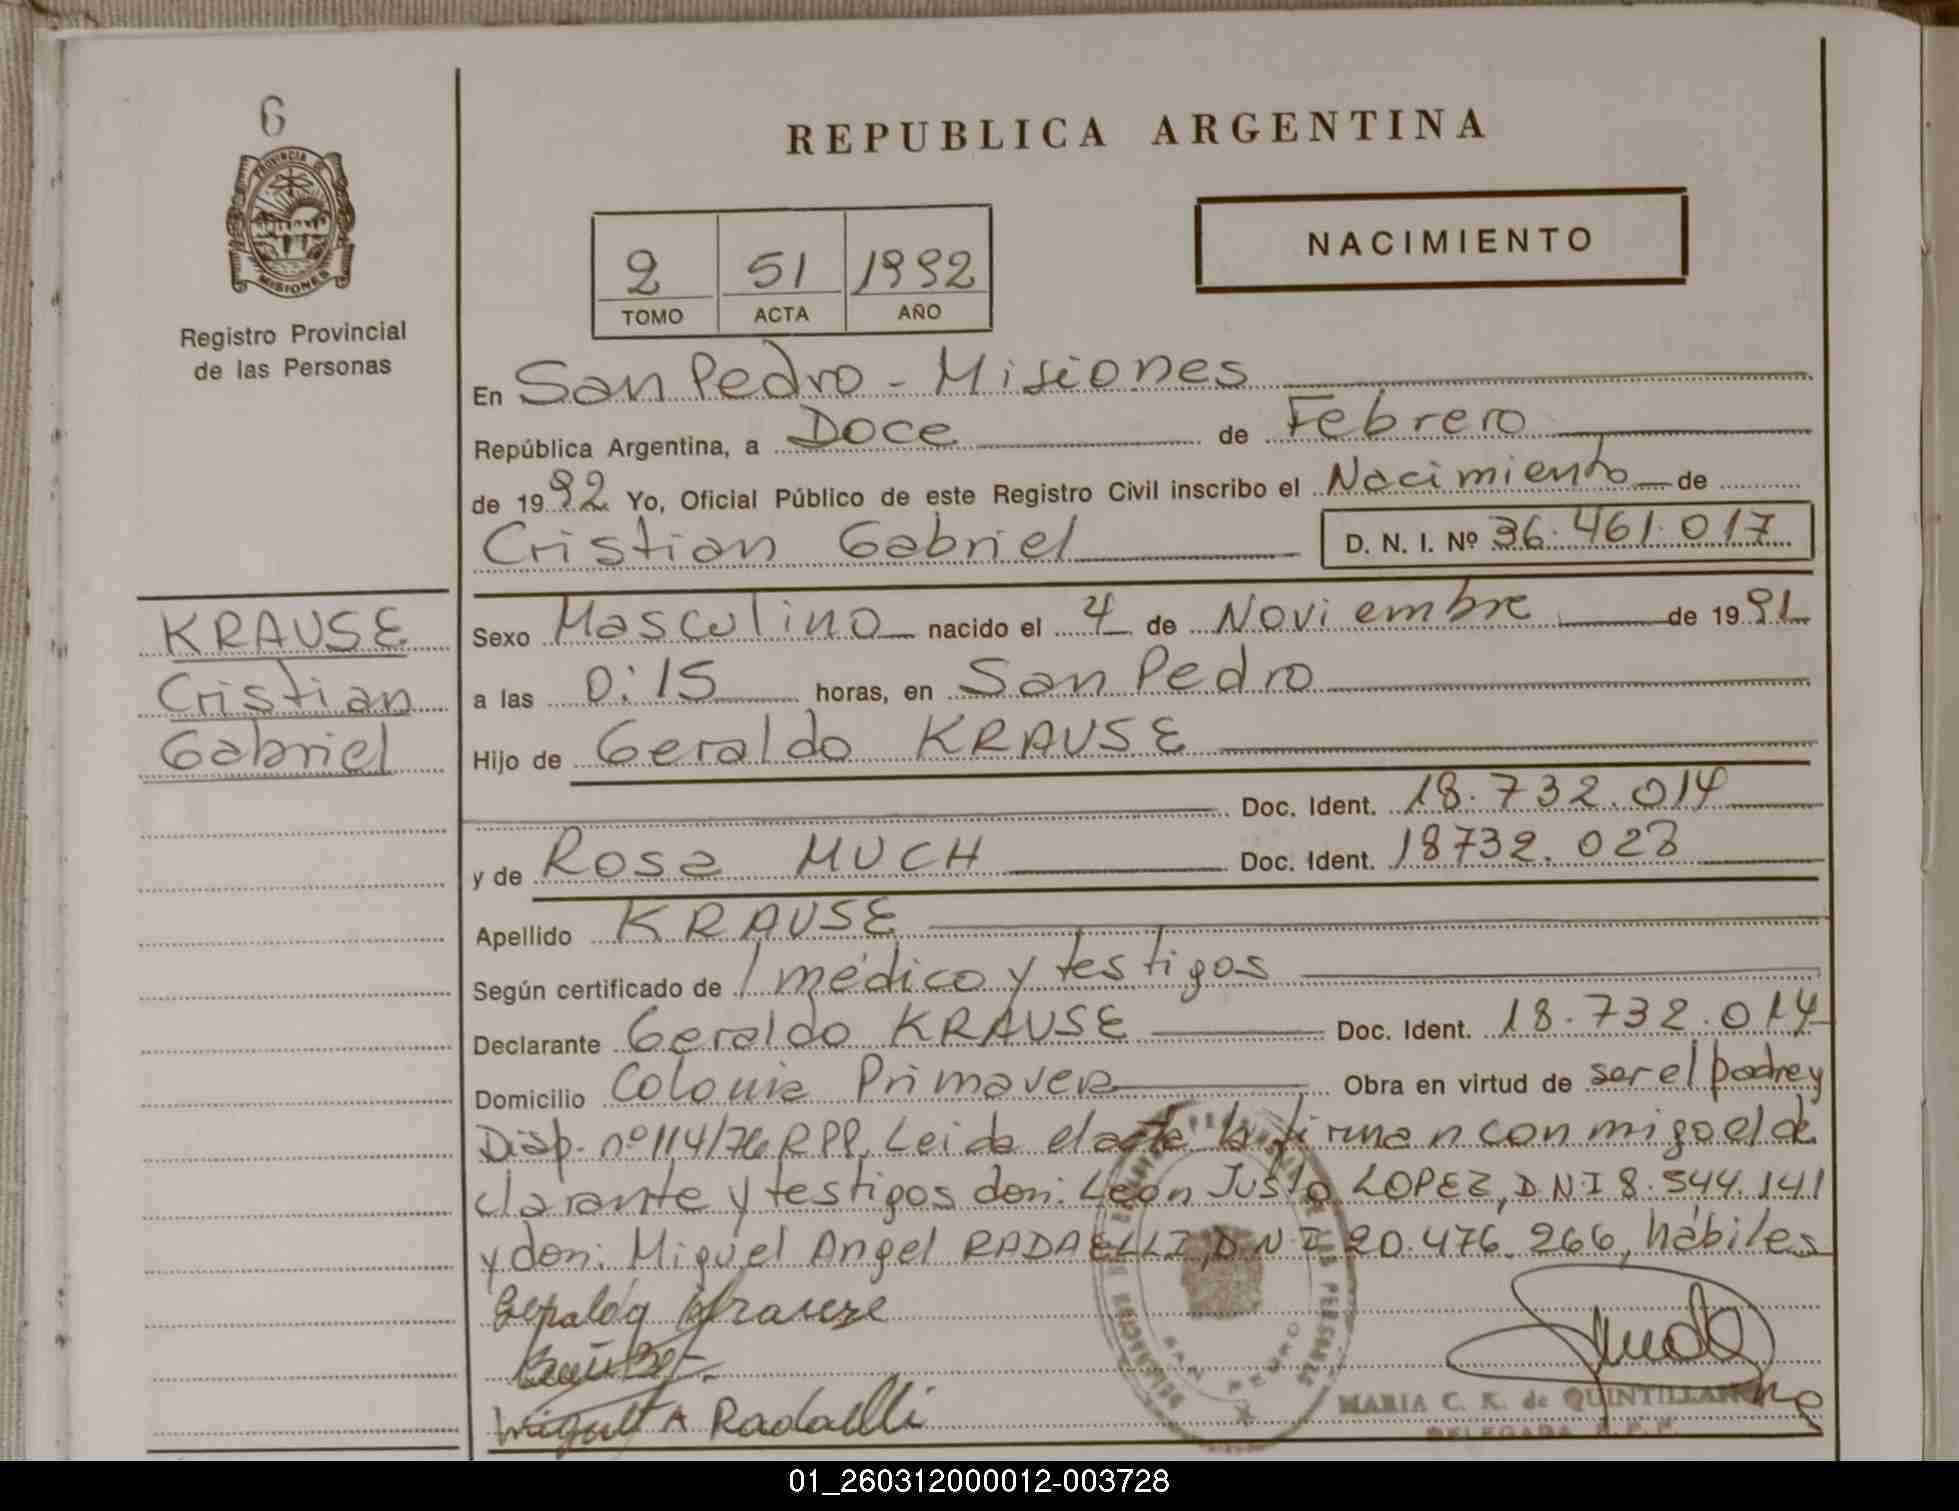 6
PROVINCIA DE
MISIONES
Registro Provincial
de las Personas
REPUBLICA ARGENTINA
NACIMIENTO
2 51 1992
TOMO ACTA AÑO
En San Pedro - Misiones
República Argentina, a Doce de Febrero
de 1992 Yo, Oficial Público de este Registro Civil inscribo el Nacimiento de
Cristian Gabriel D. N. I. Nº 36.461.017
KRAUSE
Cristian
Gabriel
Sexo Masculino nacido el 4 de Noviembre de 1991
a las 0:15 horas, en San Pedro
Hijo de Geraldo KRAUSE
Doc. Ident. 18.732.014
y de Rosa MUCH Doc. Ident. 18732.028
Apellido KRAUSE
Según certificado de / médico y testigos
Declarante Geraldo KRAUSE Doc. Ident. 18.732.014
Domicilio Colonia Primavera Obra en virtud de ser el padre y
Disp. nº 114/76 RPP. Leida el acta la firman conmigo el de
clarante y testigos don: León Justo LOPEZ, D.N.I 8.544.141
y don: Miguel Angel RADAELLI, D.N.I 20.476.266, hábiles
Krause
Miguel A Radaelli
SAN PEDRO
MARIA C. K. de QUINTILLAN
DELEGADA R.P.P.
01_260312000012-003728